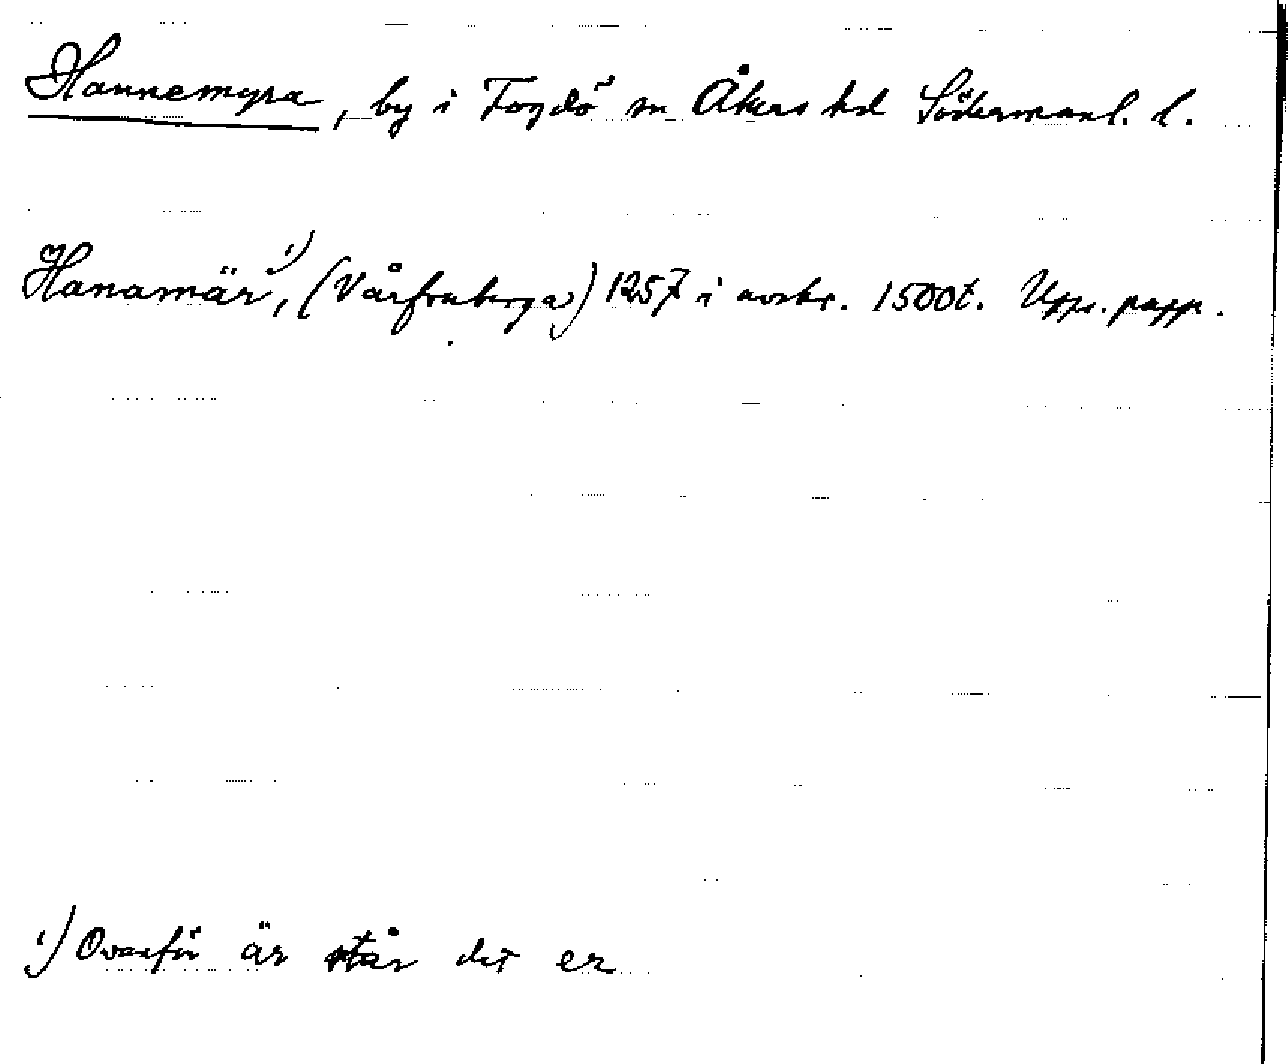 Hannemyra, by i Fogdö sn Åkers hd Södermanl. l.
Hanamär¹⁾, (Vårfruberga) 1257 i avskr. 1500t. Upps. papp.
¹⁾ Ovanför är står det er